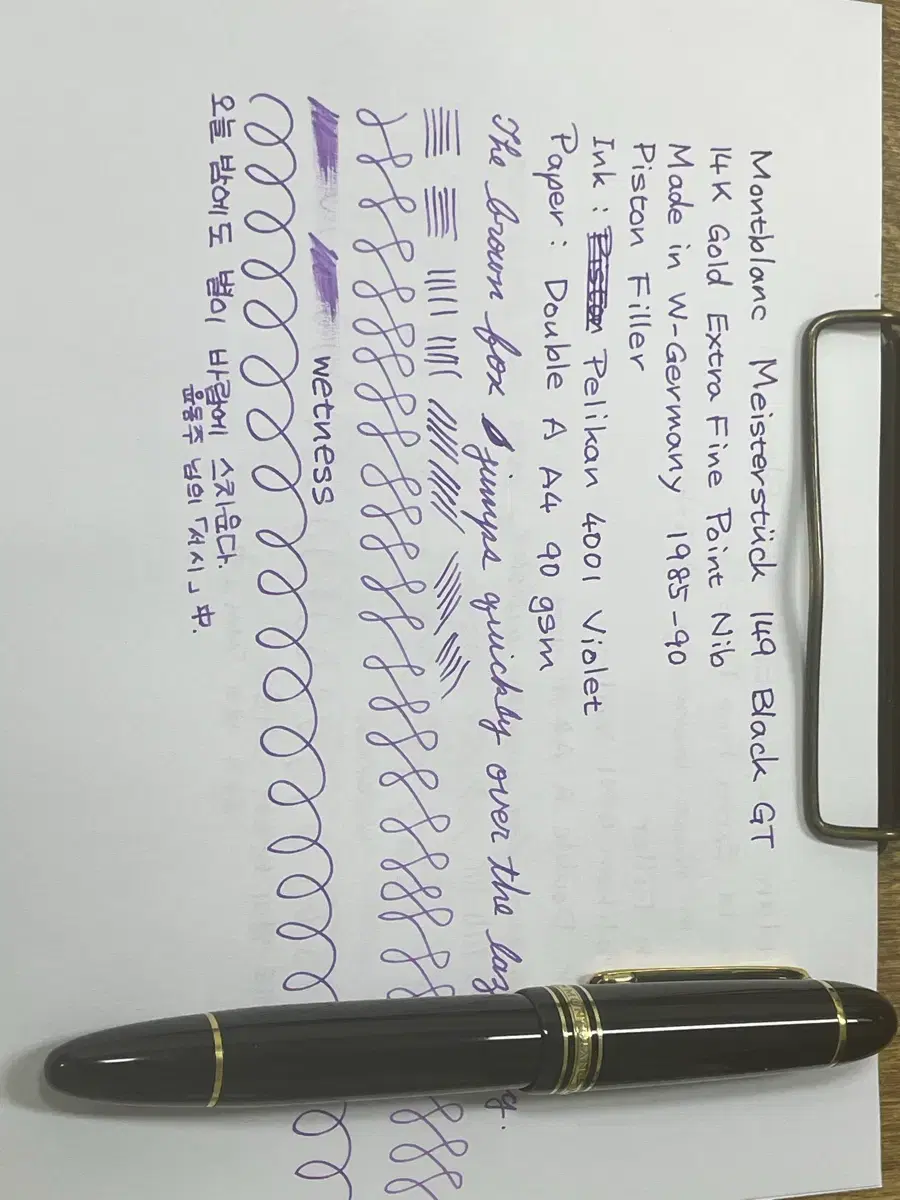 Montblanc Meisterstück 149 Black GT
14K Gold Extra Fine Point Nib
Made in W-Germany 1985-90
Piston Filler
Ink : Piston Pelikan 4001 Violet
Paper : Double A A4 90 gsm
The brown fox jumps quickly over the laz g.
wetness
오늘 밤에도 별이 바람에 스치운다.
윤동주 님의 「서시」 中.